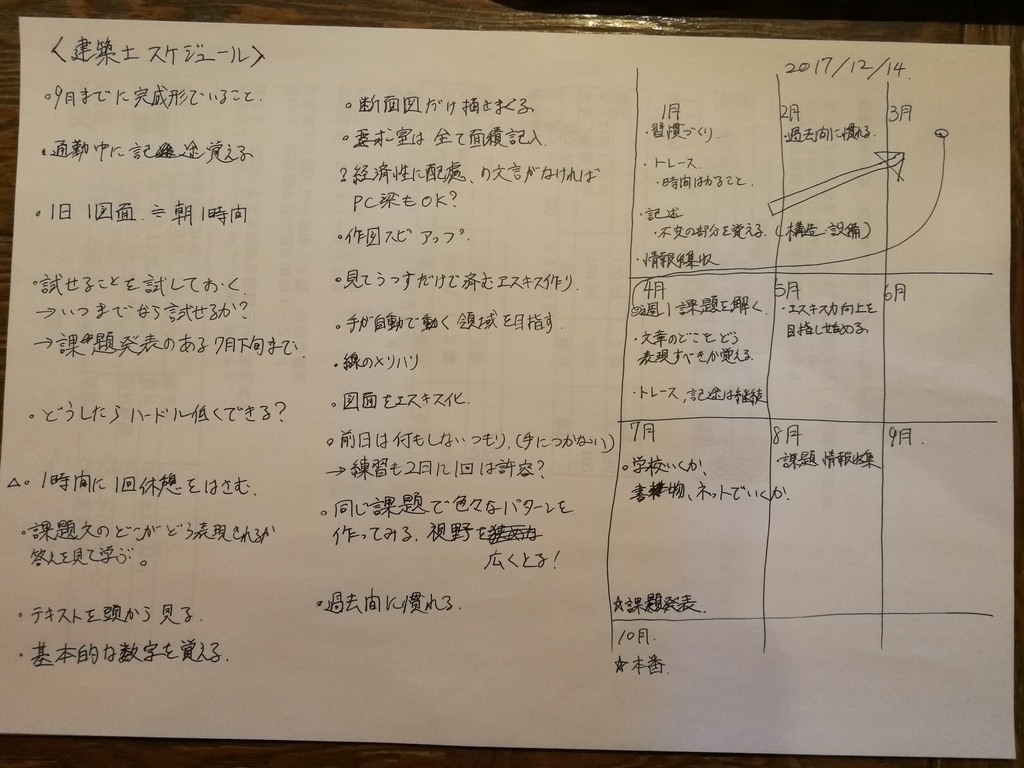 〈建築士 スケジュール〉
・9月までに完成形でいること.
・通勤中に記述覚える
・1日 1図面 ≒ 朝1時間
・試せることを試しておく.
→いつまでなら試せるか?
→課題発表のある7月下旬まで.
・どうしたらハードル低くできる?
△・1時間に1回休憩をはさむ.
・課題文のどこがどう表現されるか
答えを見て学ぶ。
・テキストを頭から見る.
・基本的な数字を覚える.
・断面図だけ描きまくる
・要求室は全て面積記入.
?経済性に配慮、の文言がなければ
PC梁もOK?
・作図スピードアップ.
・見てうつすだけで済むエスキス作り.
・手が自動で動く領域を目指す.
・線のメリハリ
・図面をエスキス化.
・前日は何もしないつもり, (手につかない)
→練習も2日に1回は許容?
・同じ課題で色々なパターンを
作ってみる. 視野を
広くとる!
・過去問に慣れる.
2017/12/14.
1月
・習慣づくり.
・トレース.
・時間はかること.
・記述
・不変の部分を覚える. (構造・設備)
・情報収集
2月
・過去問に慣れる.
3月
4月
週1課題を解く.
・文章のどこをどう
表現すべきか覚える.
・トレース, 記述は継続
5月
・エスキス力向上を
目指し始める
6月
7月
・学校いくか、
書物、ネットでいくか.
☆課題発表.
8月
・課題情報収集
9月.
10月.
☆本番.